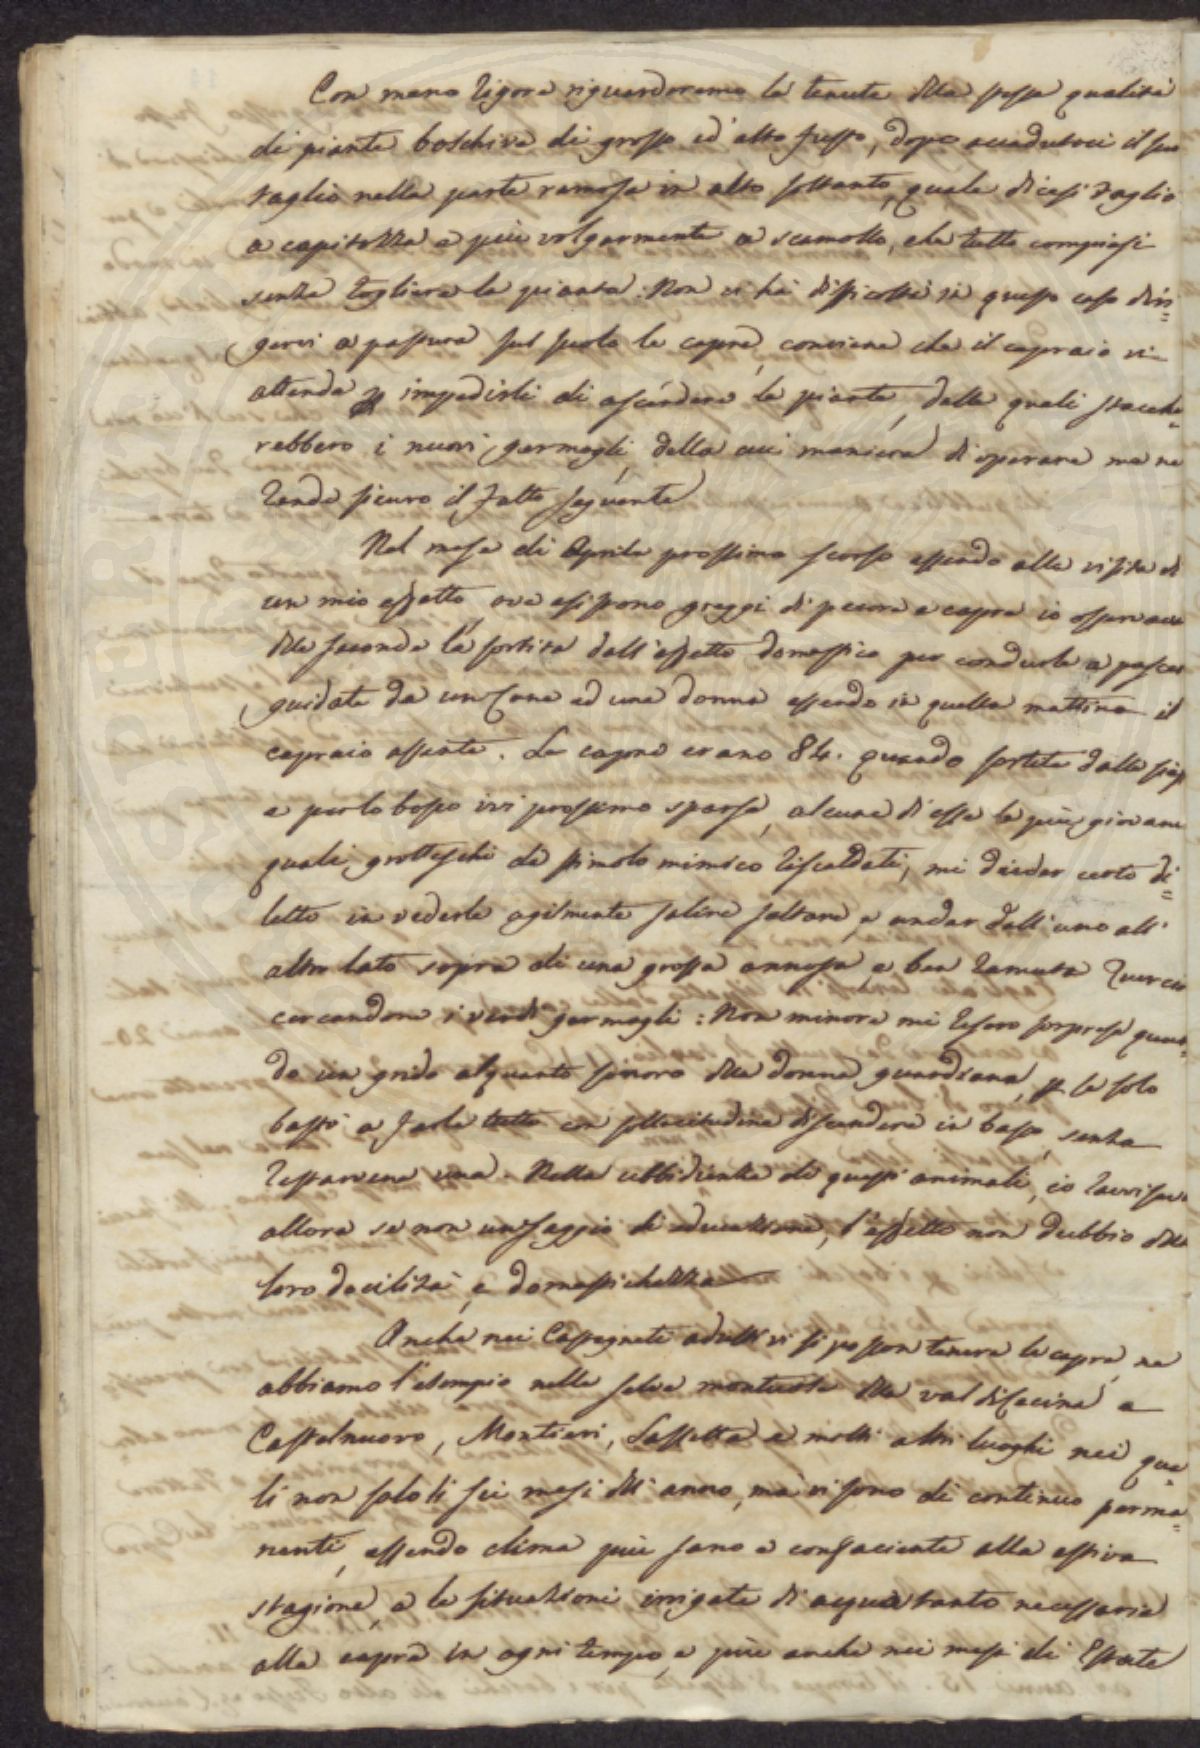 Con meno rigore riguarderemo la tenuta della stessa qualità
di piante boschive di grosso ed alto fusto, dopo accadutoci il suo
taglio nella parte ramosa in alto soltanto, quale dicesi taglio
a capitozza e più volgarmente a scamollo, che tutto compiesi
senza togliere la pianta. Non vi hai difficoltà in questo caso diri=
gervi a pastura sul suolo le capre, conviene che il capraio vi
attenda per impedirli di ascendere le piante, dalle quali stacche=
rebbero i nuovi germogli, della cui maniera di operare me ne
rende sicuro il fatto seguente
Nel mese di Aprile prossimo scorso essendo alla visita di
un mio effetto, ove esistono greggi di pecore e capre io osservava
della seconda la sortita dall'effetto domestico per condurle a pascer
guidate da un Cane ed una donna essendo in quella mattina il
capraio assente. Le capre erano 84. quando sortite dalla
e per lo bosco ivi prossimo sparse, alcune di esse le più giovani
quali grotteschi da stimolo mimico riscaldati, mi dieder certo di=
letto in vederle agilmente salire saltare, e andar dall'uno all'
altro lato sopra di una grossa annosa, e ben ramuta Quercie
cercandone i verdi germogli: Non minore mi resero sorpresa quan=
do un grido alquanto sonoro della donna guardiana, per se solo
bastò a farle tutte con sollecitudine discendere in basso, senza
restarvene una. Nella ubbidienza di questi animali, io ravvisava
allora se non un saggio di educazione, l'effetto non dubbio della
loro docilità, e domestichezza
Anche nei Castagneti adulti vi si posson tenere le capre, ne
abbiamo l'esempio nelle selve montuose della val di Cecina a
Castelnuovo, Montieri, Sassetta e molti altri luoghi nei qua=
li non solo li sei mesi dell'anno, ma vi sono di continuo perma=
nenti, essendo clima più sano e confaciente alla estiva
stagione, e le situazioni irrigate di acqua tanto necessaria
alla capra in ogni tempo, e più anche nei mesi di Estate